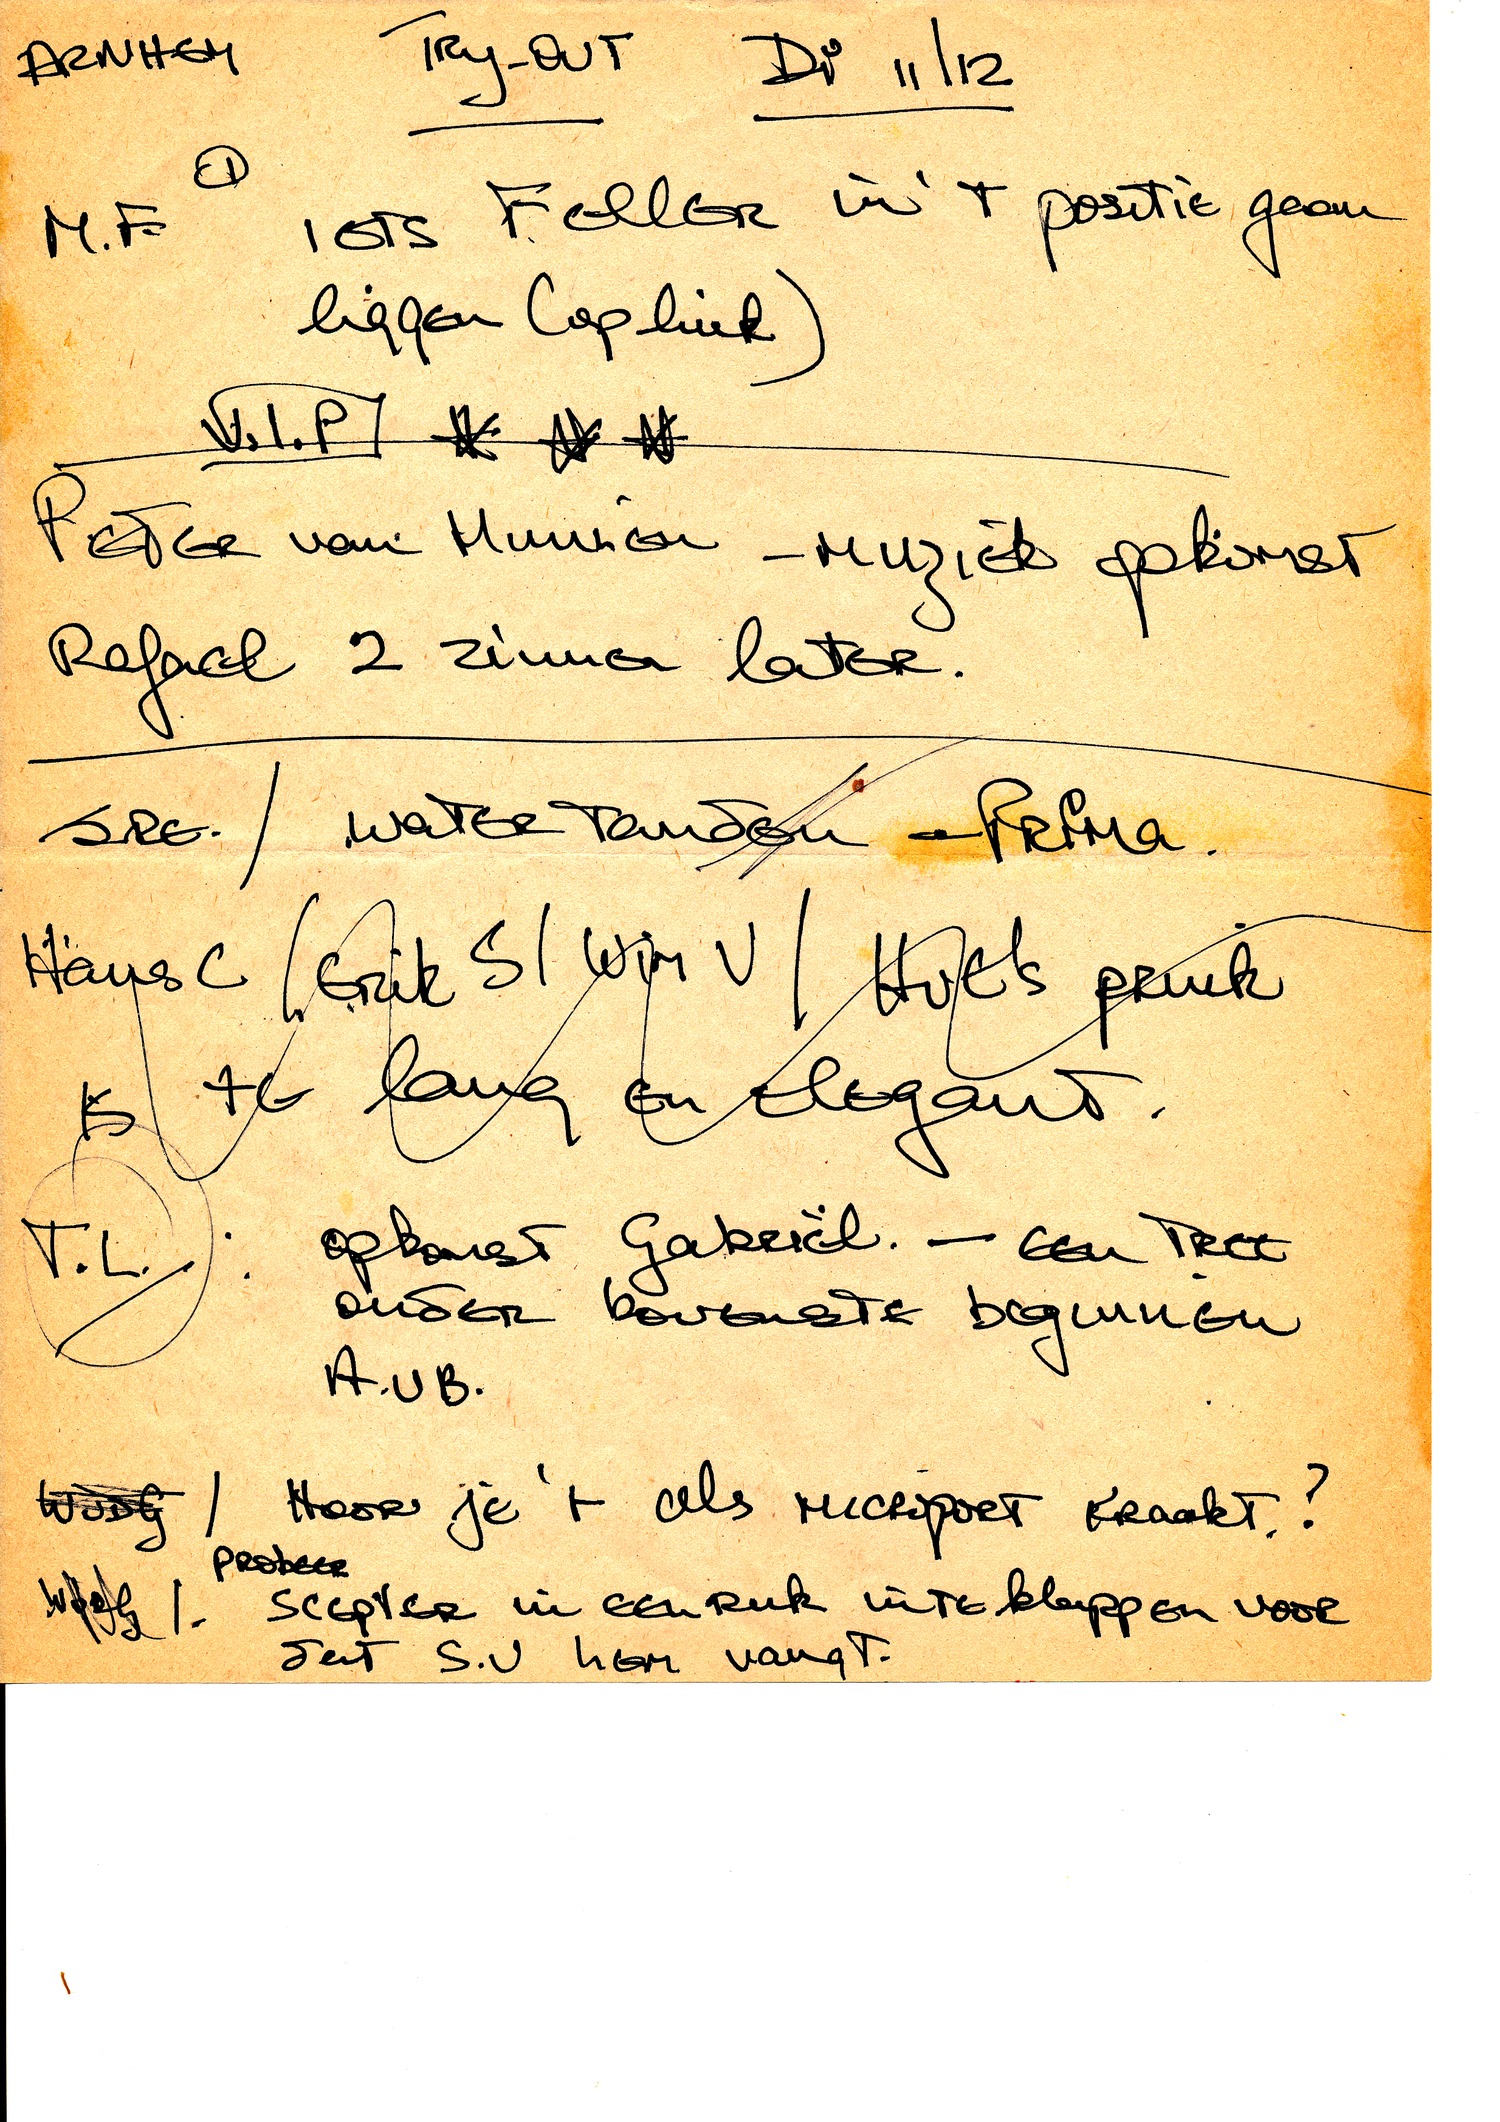 ARNHEM TRY-OUT Di 11/12
M.F ① IETS FELLER in 't positie gaan
liggen (op hink)
V.I.P
PETER van Munster - MUZIEK opkomst
Rafael 2 zinnen later.
SRE. / WATERTANDEN - PRIMA.
Hans C / Erik S / Wim V / HUEb pruik
is te lang en elegant.
T.L. : opkomst Gabriël. - een TREE
onder bovenste beginnen
A.U.B.
/ Hoor je 't als MICROPORT kraakt.?
PROBEER
/. SCEPTER in een ruk in te klappen voor
dat S.V hem vangt.